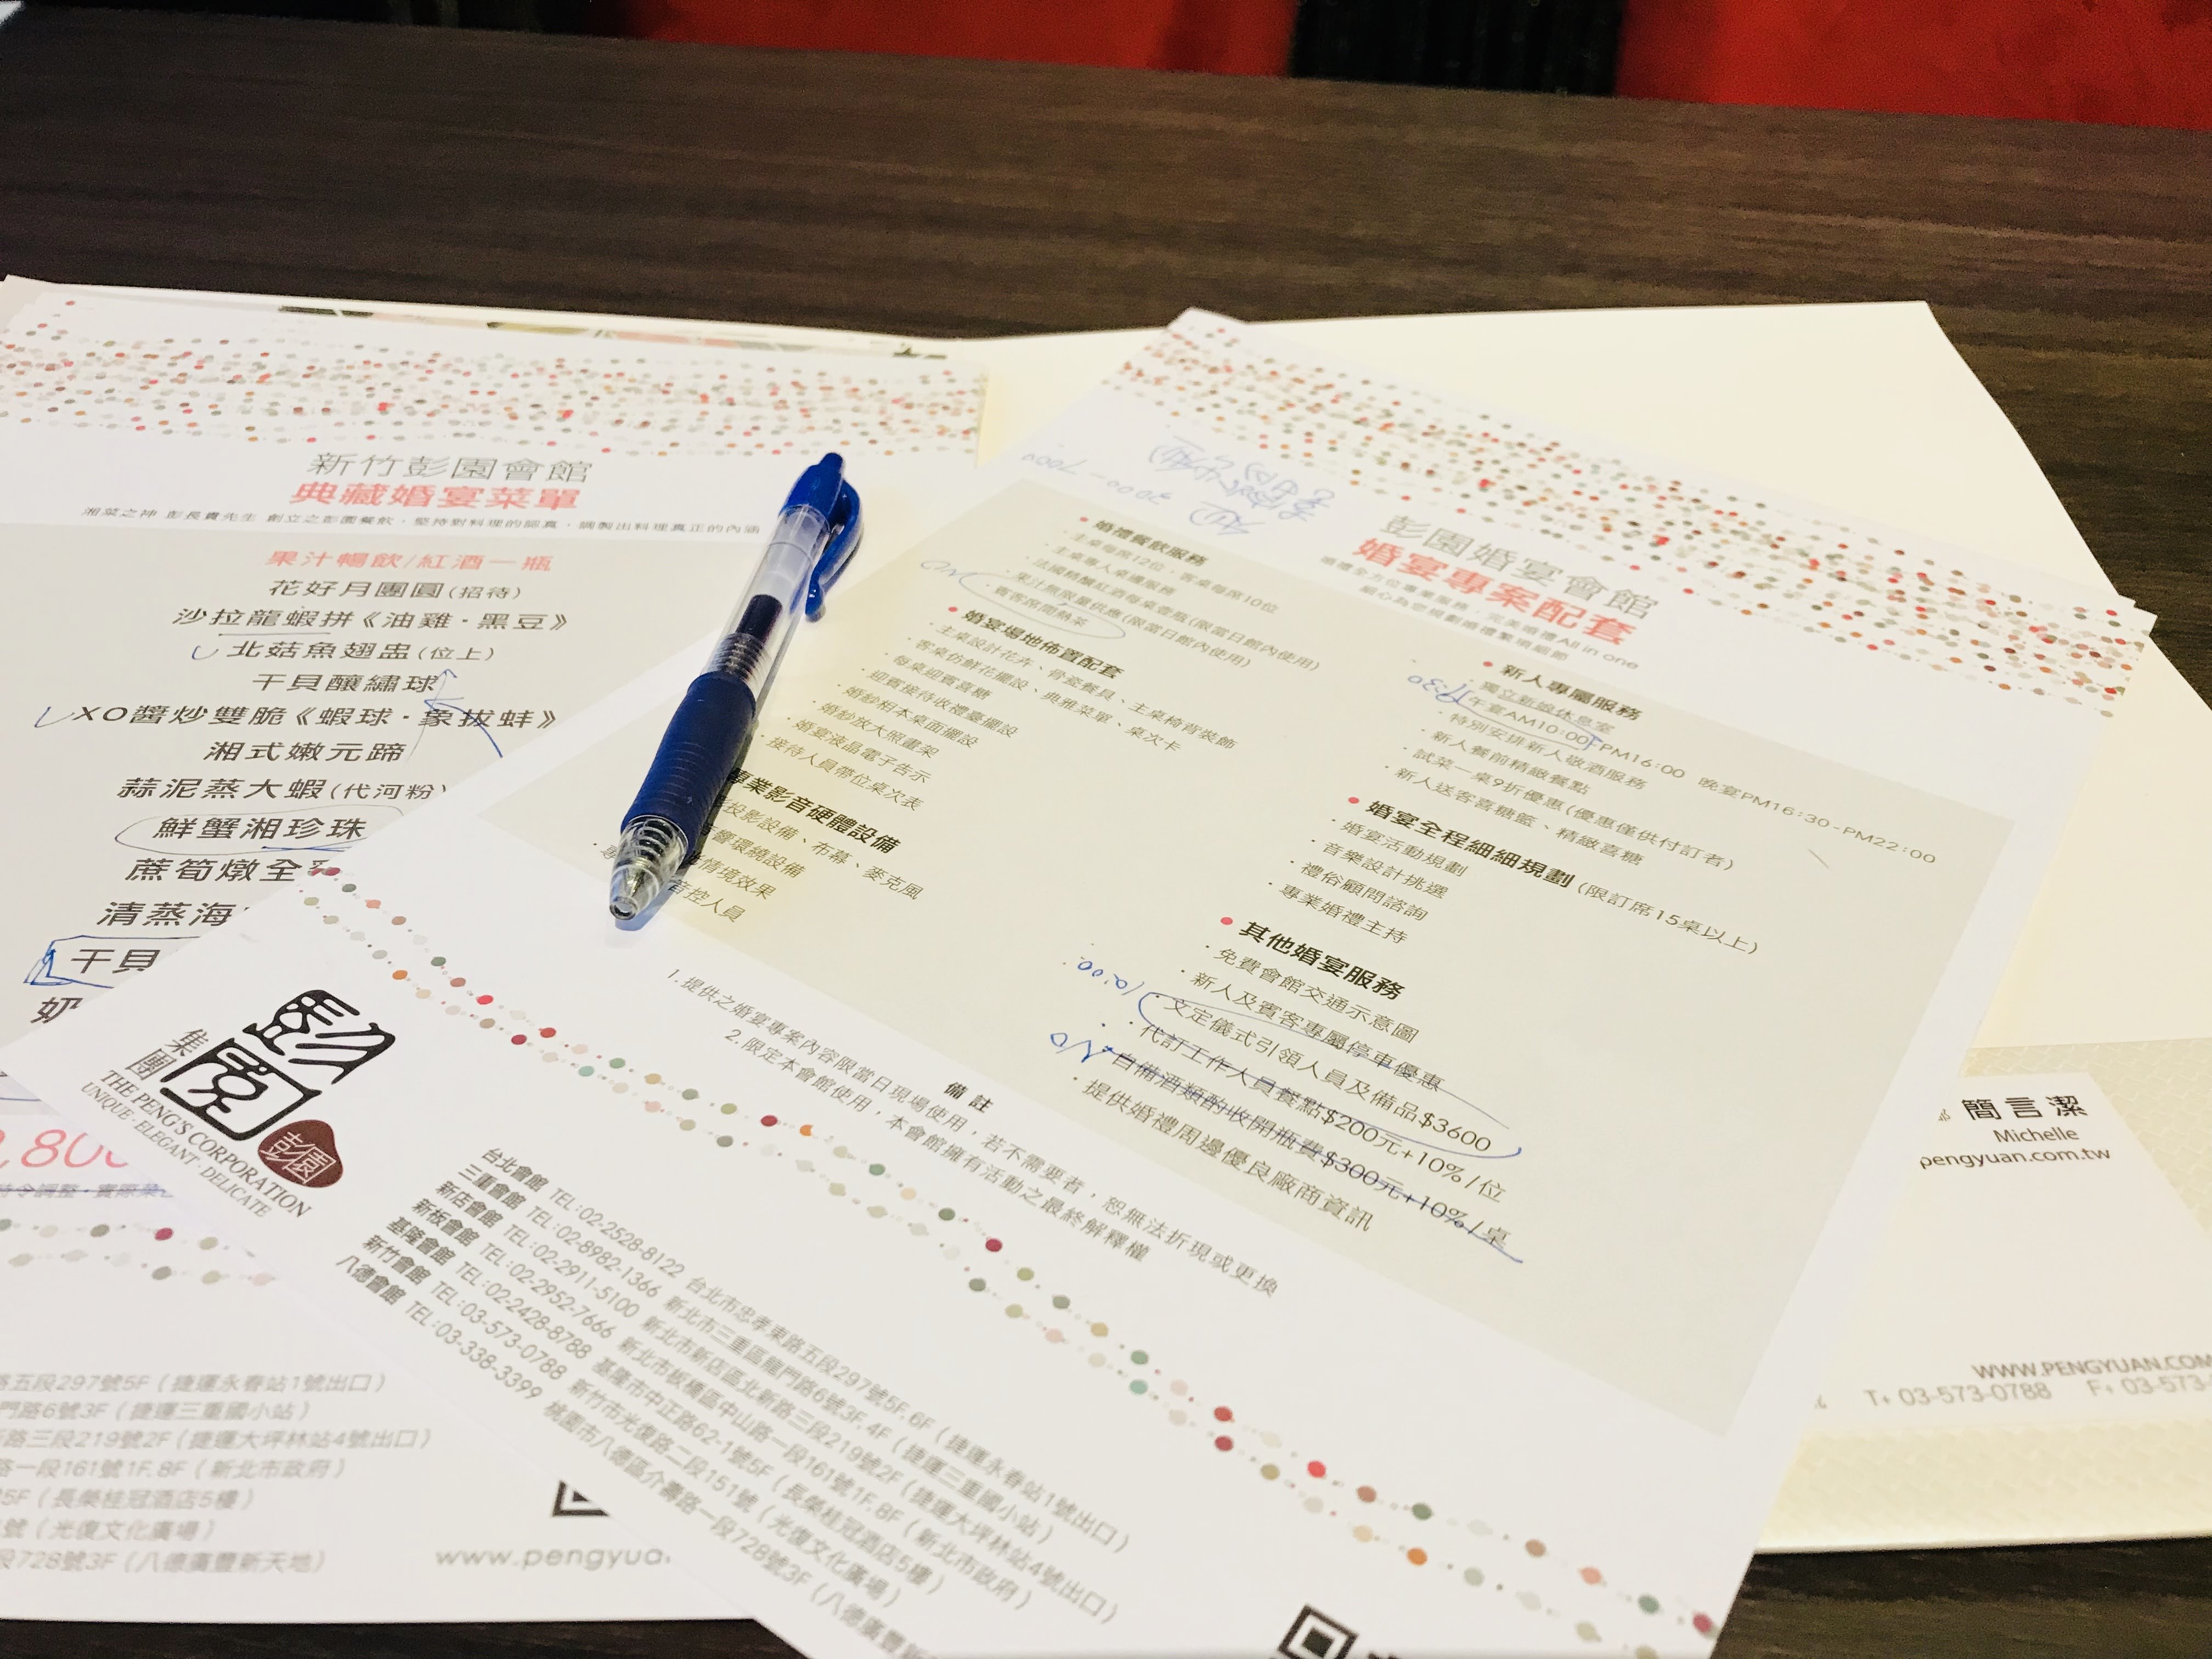 新竹彭園會館
典藏婚宴菜單
湘菜之神 彭長貴先生 創立之彭園餐飲，堅持對料理的認真，調製出料理真正的內涵
果汁暢飲/紅酒一瓶
花好月團圓(招待)
沙拉龍蝦拼《油雞·黑豆》
北菇魚翅盅(位上)
干貝釀繡球
XO醬炒雙脆《蝦球·象拔蚌》
湘式嫩元蹄
蒜泥蒸大蝦(代河粉)
鮮蟹湘珍珠
蔗筍燉全
清蒸海
干貝
奶
,800
路五段297號5F（捷運永春站1號出口）
門路6號3F（捷運三重國小站）
路三段219號2F（捷運大坪林站4號出口）
路一段161號1F,8F（新北市政府）
5F（長榮桂冠酒店5樓）
號（光復文化廣場）
段728號3F（八德廣豐新天地）
www.pengyua
彭園婚宴會館
婚宴專案配套
婚禮全方位專業服務，完美婚禮All in one
3000-7000
● 婚禮餐飲服務
· 主桌每席12位，客桌每席10位
· 主桌專人桌邊服務
· 法國精釀紅酒每桌壹瓶(限當日館內使用)
· 果汁無限量供應(限當日館內使用)
· 賓客席間熱茶
NO
● 婚宴場地佈置配套
· 主桌設計花卉、骨瓷餐具、主桌椅背裝飾
· 客桌仿鮮花擺設、典雅菜單、桌次卡
· 每桌迎賓喜糖
· 迎賓接待收禮臺擺設
· 婚紗相本桌面擺設
· 婚紗放大照畫架
· 婚宴液晶電子告示
· 接待人員帶位桌次表
專業影音硬體設備
投影設備、布幕、麥克風
音響環繞設備
情境效果
音控人員
● 新人專屬服務
· 獨立新娘休息室
(午宴AM10:00-PM16:00 晚宴PM16:30-PM22:00
· 特別安排新人敬酒服務
· 新人餐前精緻餐點
· 試菜一桌9折優惠(優惠僅供付訂者)
· 新人送客喜糖籃、精緻喜糖
● 婚宴全程細細規劃(限訂席15桌以上)
· 婚宴活動規劃
· 音樂設計挑選
· 禮俗顧問諮詢
· 專業婚禮主持
● 其他婚宴服務
· 免費會館交通示意圖
· 新人及賓客專屬停車優惠
· 文定儀式引領人員及備品$3600
· 代訂工作人員餐點$200元+10%/位
· 自備酒類酌收開瓶費$300元+10%/桌
· 提供婚禮周邊優良廠商資訊
10:00
NO
備註
1.提供之婚宴專案內容限當日現場使用，若不需要者，恕無法折現或更換
2.限定本會館使用，本會館擁有活動之最終解釋權
彭園
集團
THE PENG'S CORPORATION
UNIQUE·ELEGANT·DELICATE
彭園
台北會館 TEL:02-2528-8122 台北市忠孝東路五段297號5F,6F（捷運永春站1號出口）
三重會館 TEL:02-8982-1366 新北市三重區龍門路6號3F,4F（捷運三重國小站）
新店會館 TEL:02-2911-5100 新北市新店區北新路三段219號2F（捷運大坪林站4號出口）
新板會館 TEL:02-2952-7666 新北市板橋區中山路一段161號1F,8F（新北市政府）
基隆會館 TEL:02-2428-8788 基隆市中正路62-1號5F（長榮桂冠酒店5樓）
新竹會館 TEL:03-573-0788 新竹市光復路二段151號（光復文化廣場）
八德會館 TEL:03-338-3399 桃園市八德區介壽路一段728號3F（八德廣豐
簡言潔
Michelle
pengyuan.com.tw
WWW.PENGYUAN.COM
T+ 03-573-0788 F+ 03-573-